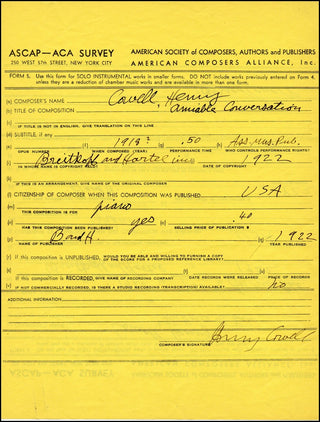 ASCAP — ACA SURVEY
250 WEST 57th STREET, NEW YORK CITY
AMERICAN SOCIETY of COMPOSERS, AUTHORS and PUBLISHERS
AMERICAN COMPOSERS ALLIANCE, Inc.
FORM 5. Use this form for SOLO INSTRUMENTAL works in smaller forms. DO NOT include works previously entered on Form 4,
unless they are a reduction of chamber music works and are involved in independent publication.
(a) COMPOSER'S NAME Cowell, Henry
(b) TITLE OF COMPOSITION Amiable Conversation
(c) IF TITLE IS NOT IN ENGLISH, GIVE TRANSLATION ON THIS LINE
(d) SUBTITLE, if any
1913? .50 Ass. Mus. Pub.
OPUS NUMBER WHEN COMPOSED (YEAR) PERFORMANCE TIME WHO CONTROLS PERFORMANCE RIGHTS?
Breitkopf and Hartel inc 1922
IN WHOSE NAME IS COPYRIGHT HELD? DATE OF COPYRIGHT
IF THIS IS AN ARRANGEMENT, GIVE NAME OF THE ORIGINAL COMPOSER
CITIZENSHIP OF COMPOSER WHEN THIS COMPOSITION WAS PUBLISHED USA
piano
THIS COMPOSITION IS FOR
yes .40
HAS THIS COMPOSITION BEEN PUBLISHED? SELLING PRICE OF PUBLICATION $
B and H. 1922
NAME OF PUBLISHER YEAR PUBLISHED
If this composition is UNPUBLISHED, WOULD YOU BE ABLE AND WILLING TO FURNISH A COPY
OF THE SCORE FOR A PROPOSED REFERENCE LIBRARY?
If this composition is RECORDED, GIVE NAME OF RECORDING COMPANY DATE RECORDS WERE RELEASED PRICE OF RECORDS
no
IF NOT COMMERCIALLY RECORDED, IS THERE A STUDIO RECORDING (TRANSCRIPTION) AVAILABLE?
ADDITIONAL INFORMATION
Henry Cowell
COMPOSER'S SIGNATURE